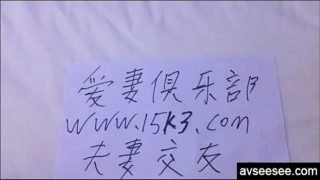 爱妻俱乐部
www.15k3.com
夫妻交友
avseesee.com